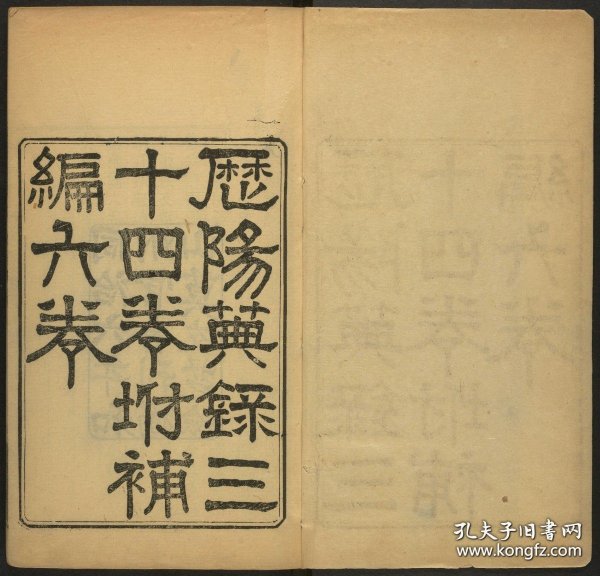 歷陽典錄三
十四卷坿補
編六卷
孔夫子旧书网
www.kongfz.com